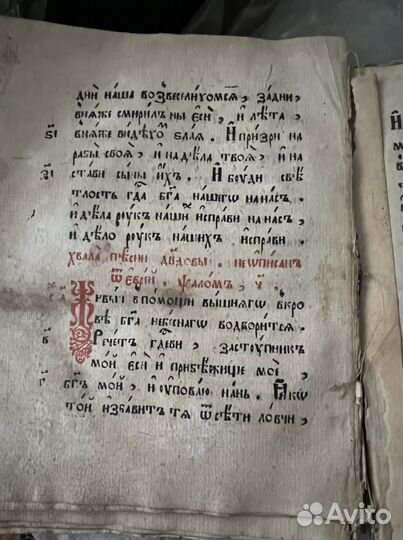 дни̑ на́ша возвесели́хомсѧ, за́дни,
внѧ́же смири́лъ ны є҆сѝ, и҆ лѣ́та,
внѧ́же ви́дѣхоⷨ ѕла́ѧ. И҆ при́зри на
ѕ҃і рабы̀ своѧ̀, и҆ на дѣ́ла твоѧ̀, и҆ на
з҃і ста́ви сы́ны и҆́хъ. И҆ бꙋ́ди свѣ́
тлость гдⷭ҇а бг҃а на́шегѡ на на́съ.
и҆ дѣ́ла рꙋ́къ на́шиⷯ и҆спра́ви на на́съ,
и҆ дѣ́ло рꙋ́къ на́шихъ и҆спра́ви.
хвала̀ пѣ́сни дв҃довы. не ѡ҆пи́санъ
ѿ є҆врє́й. ѱало́мъ, ч҃.
а҃ Живы́й в по́мощи вы́шнѧгѡ в кро́
вѣ бг҃а нб҃снагѡ водвори́тсѧ.
в҃ Рече́тъ гдⷭ҇еви, засту́пникъ
мо́й є҆сѝ и҆ прибѣ́жище моѐ,
г҃ бг҃ъ мо́й, и҆ ᲂу҆пова́ю на́нь. Ꙗ҆́кѡ
то́й и҆зба́витъ тѧ ѿ сѣ́ти ло́вчи,
Avito